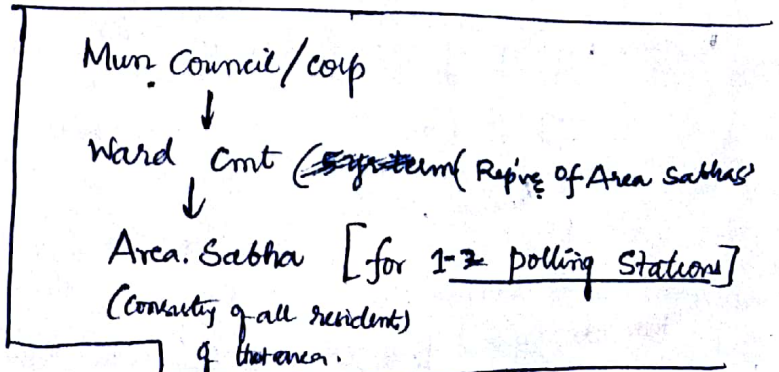 Mun. Council/corp
↓
Ward Cmt ( ( Rep've of Area Sabhas
↓
Area. Sabha [for 1-2 polling Stations]
(Consisting of all residents)
of that area.